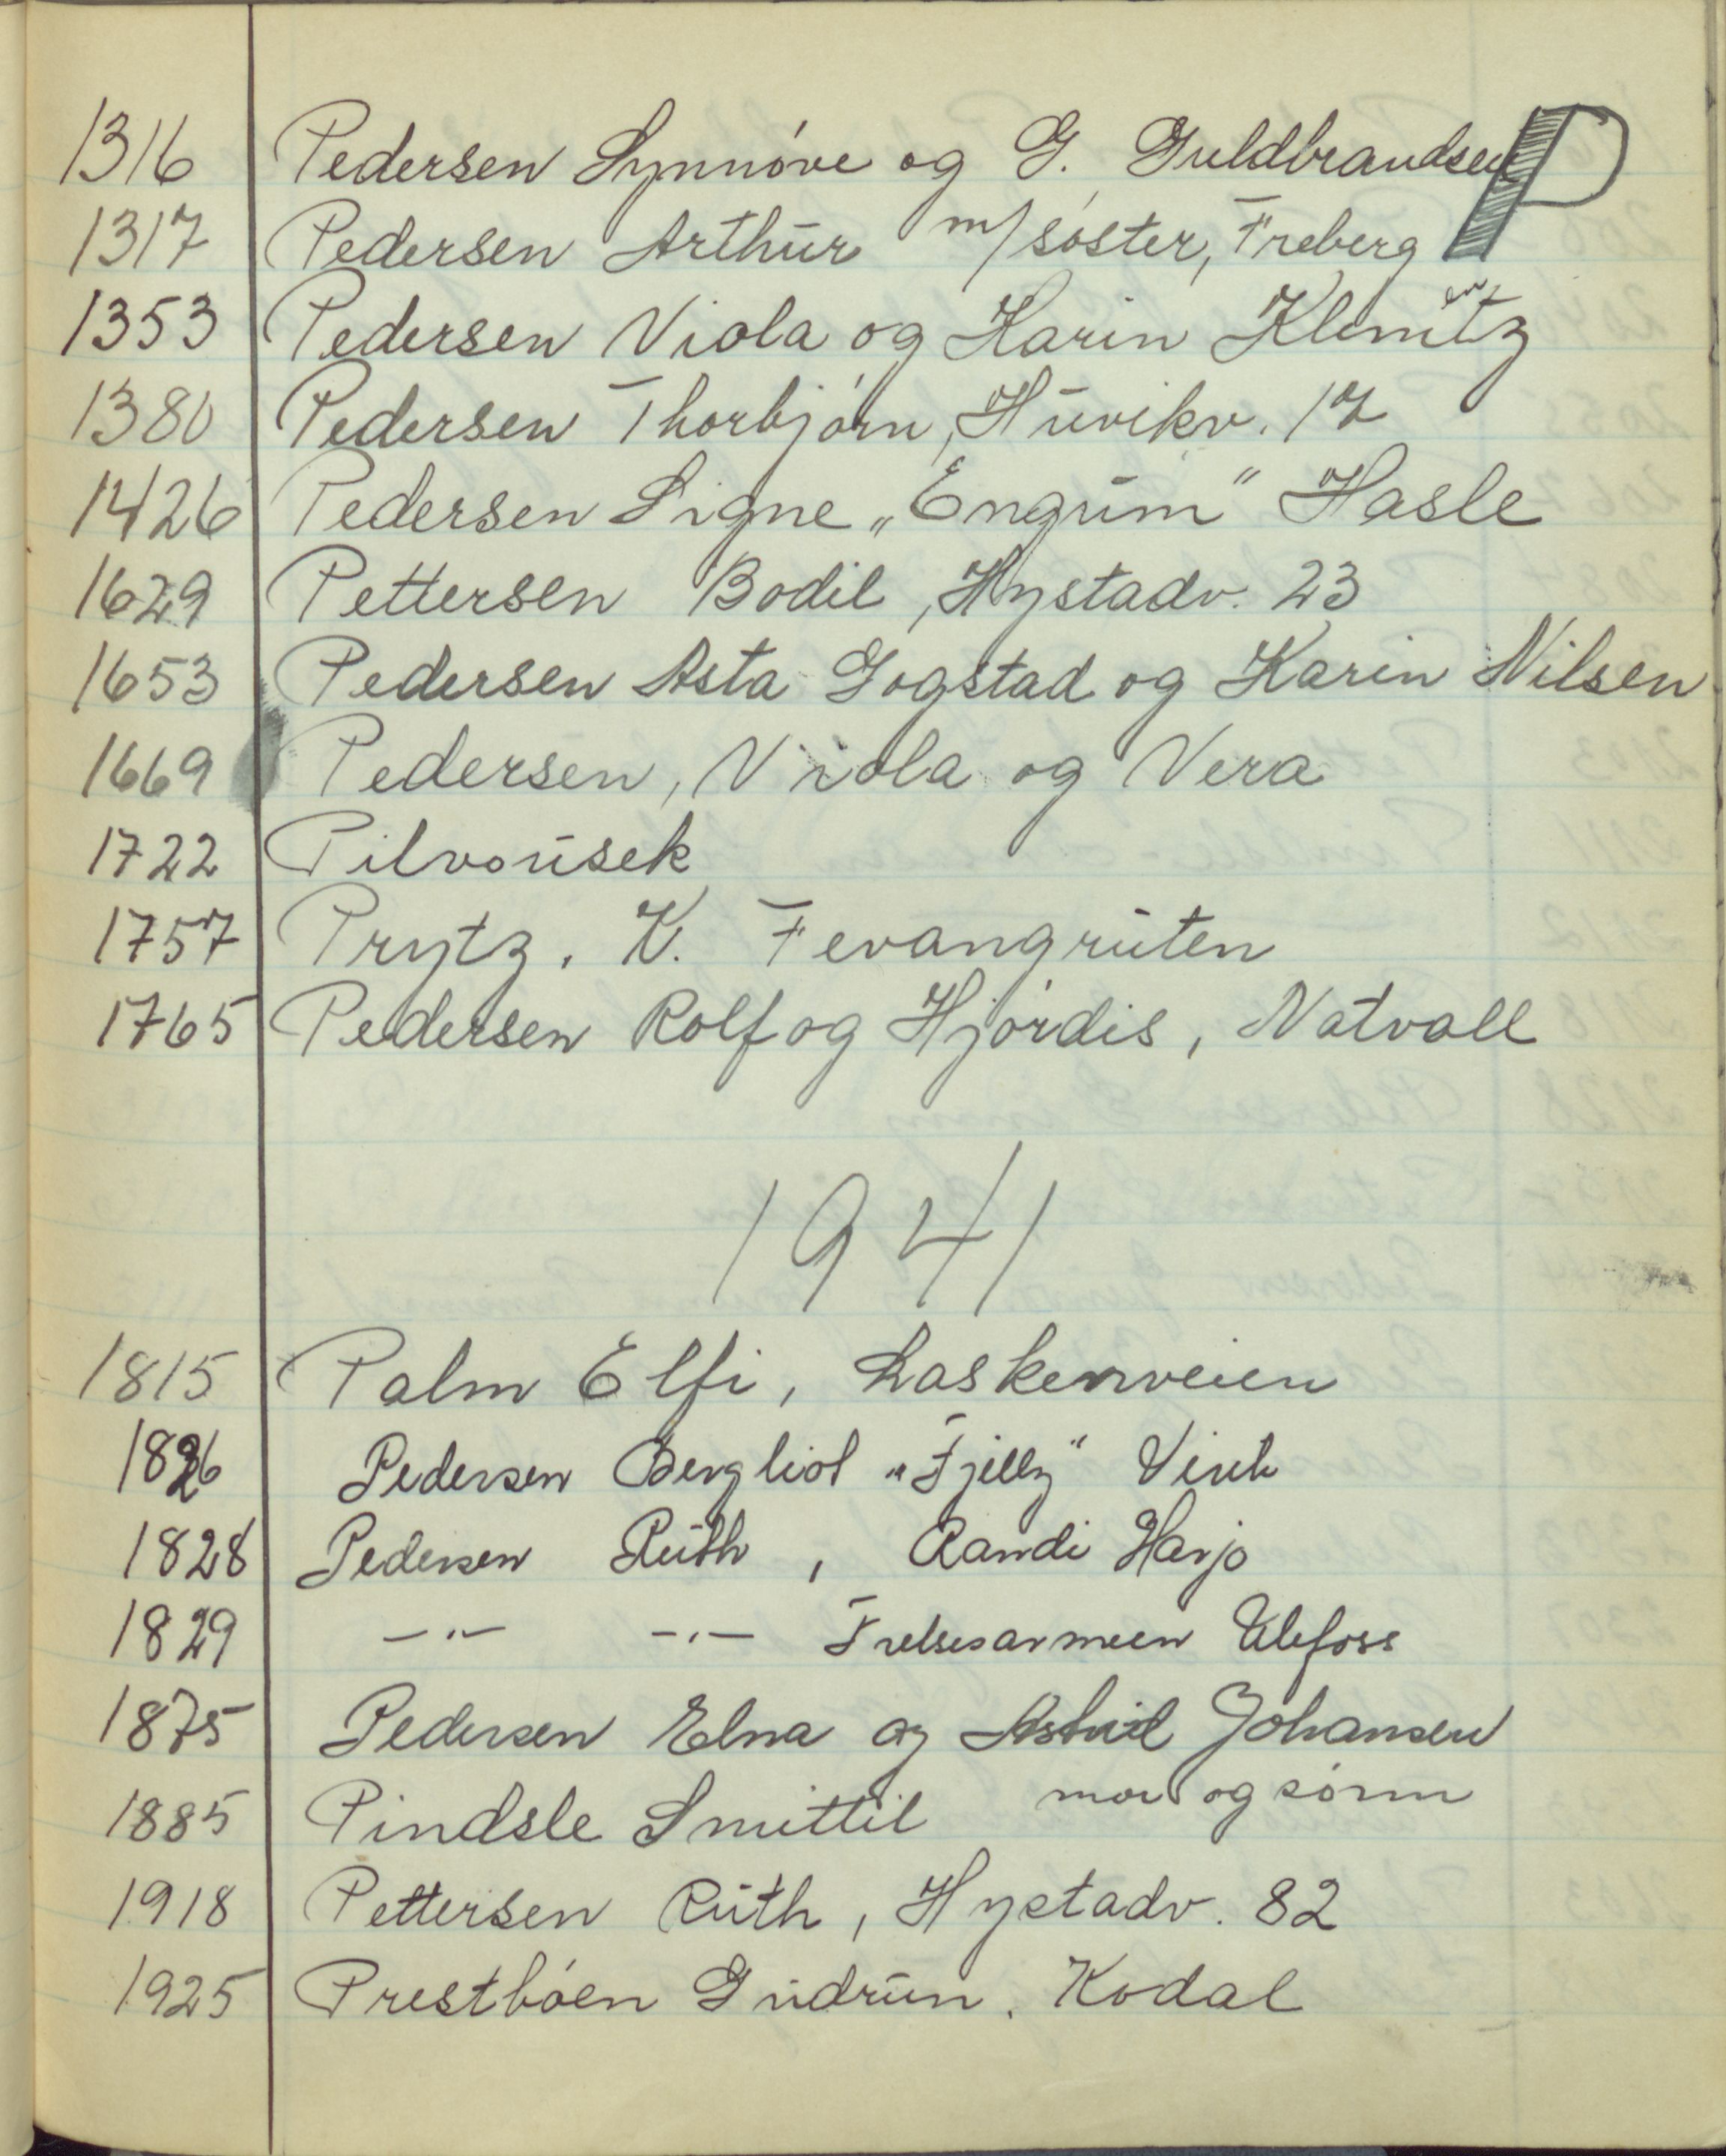 P
1316 Pedersen Synnóve og G. Guldbrandsen
1317 Pedersen Arthur m/sóster, Freberg
1353 Pedersen Viola og Karin Klemetz
1380 Pedersen Thorbjórn, Huvikv. 17
1426 Pedersen Signe „Engrim" Hasle
1629 Pettersen Bodil, Hystadv. 23
1653 Pedersen Asta Gogstad og Karin Nilsen
1669 Pedersen, Viola og Vera
1722 Pilvousek
1757 Prytz. K. Fevangruten
1765 Pedersen Rolf og Hjórdis, Natvall
1941
1815 Palm Elfi, Laskenveien
1826 Pedersen Bergliot „Fjelly"
1828 Pedersen Ruth, Randi Harjo
1829 -"- -"- Frelsesarmeen Ulefoss
1875 Pedersen Elna og Astrid Johansen
1885 Pindsle Smittil mor og sónn
1918 Pettersen Ruth, Hystadv. 82
1925 Prestbóen Gudrun. Kodal